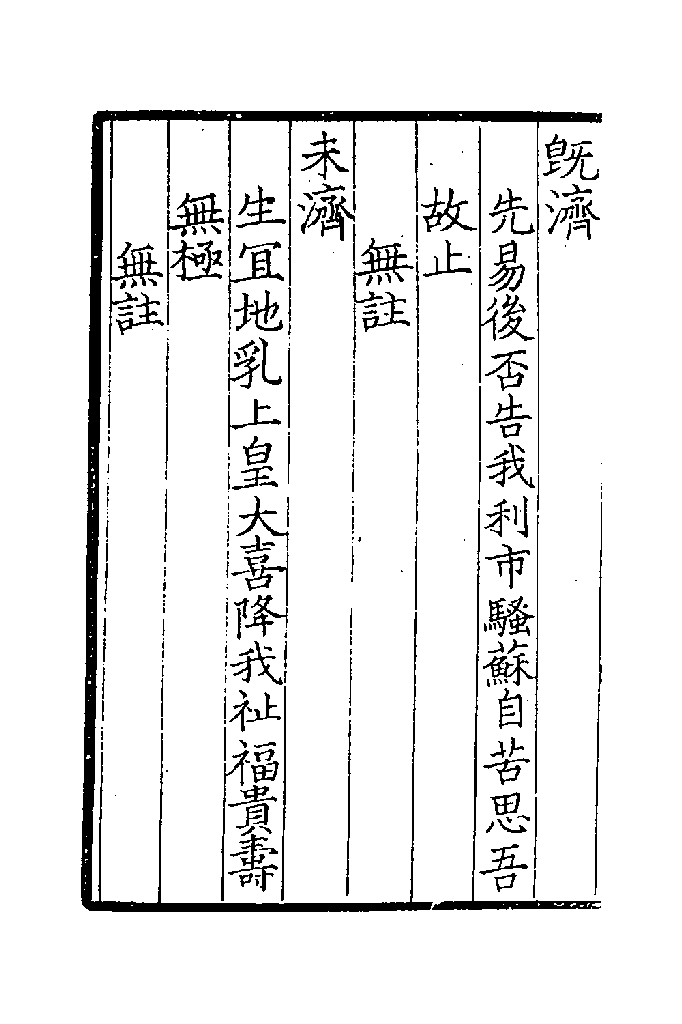 旣濟
先易後否告我利市騷蘇自苦思吾
故止
無註
未濟
生冝地乳上皇大喜降我祉福貴壽
無極
無註